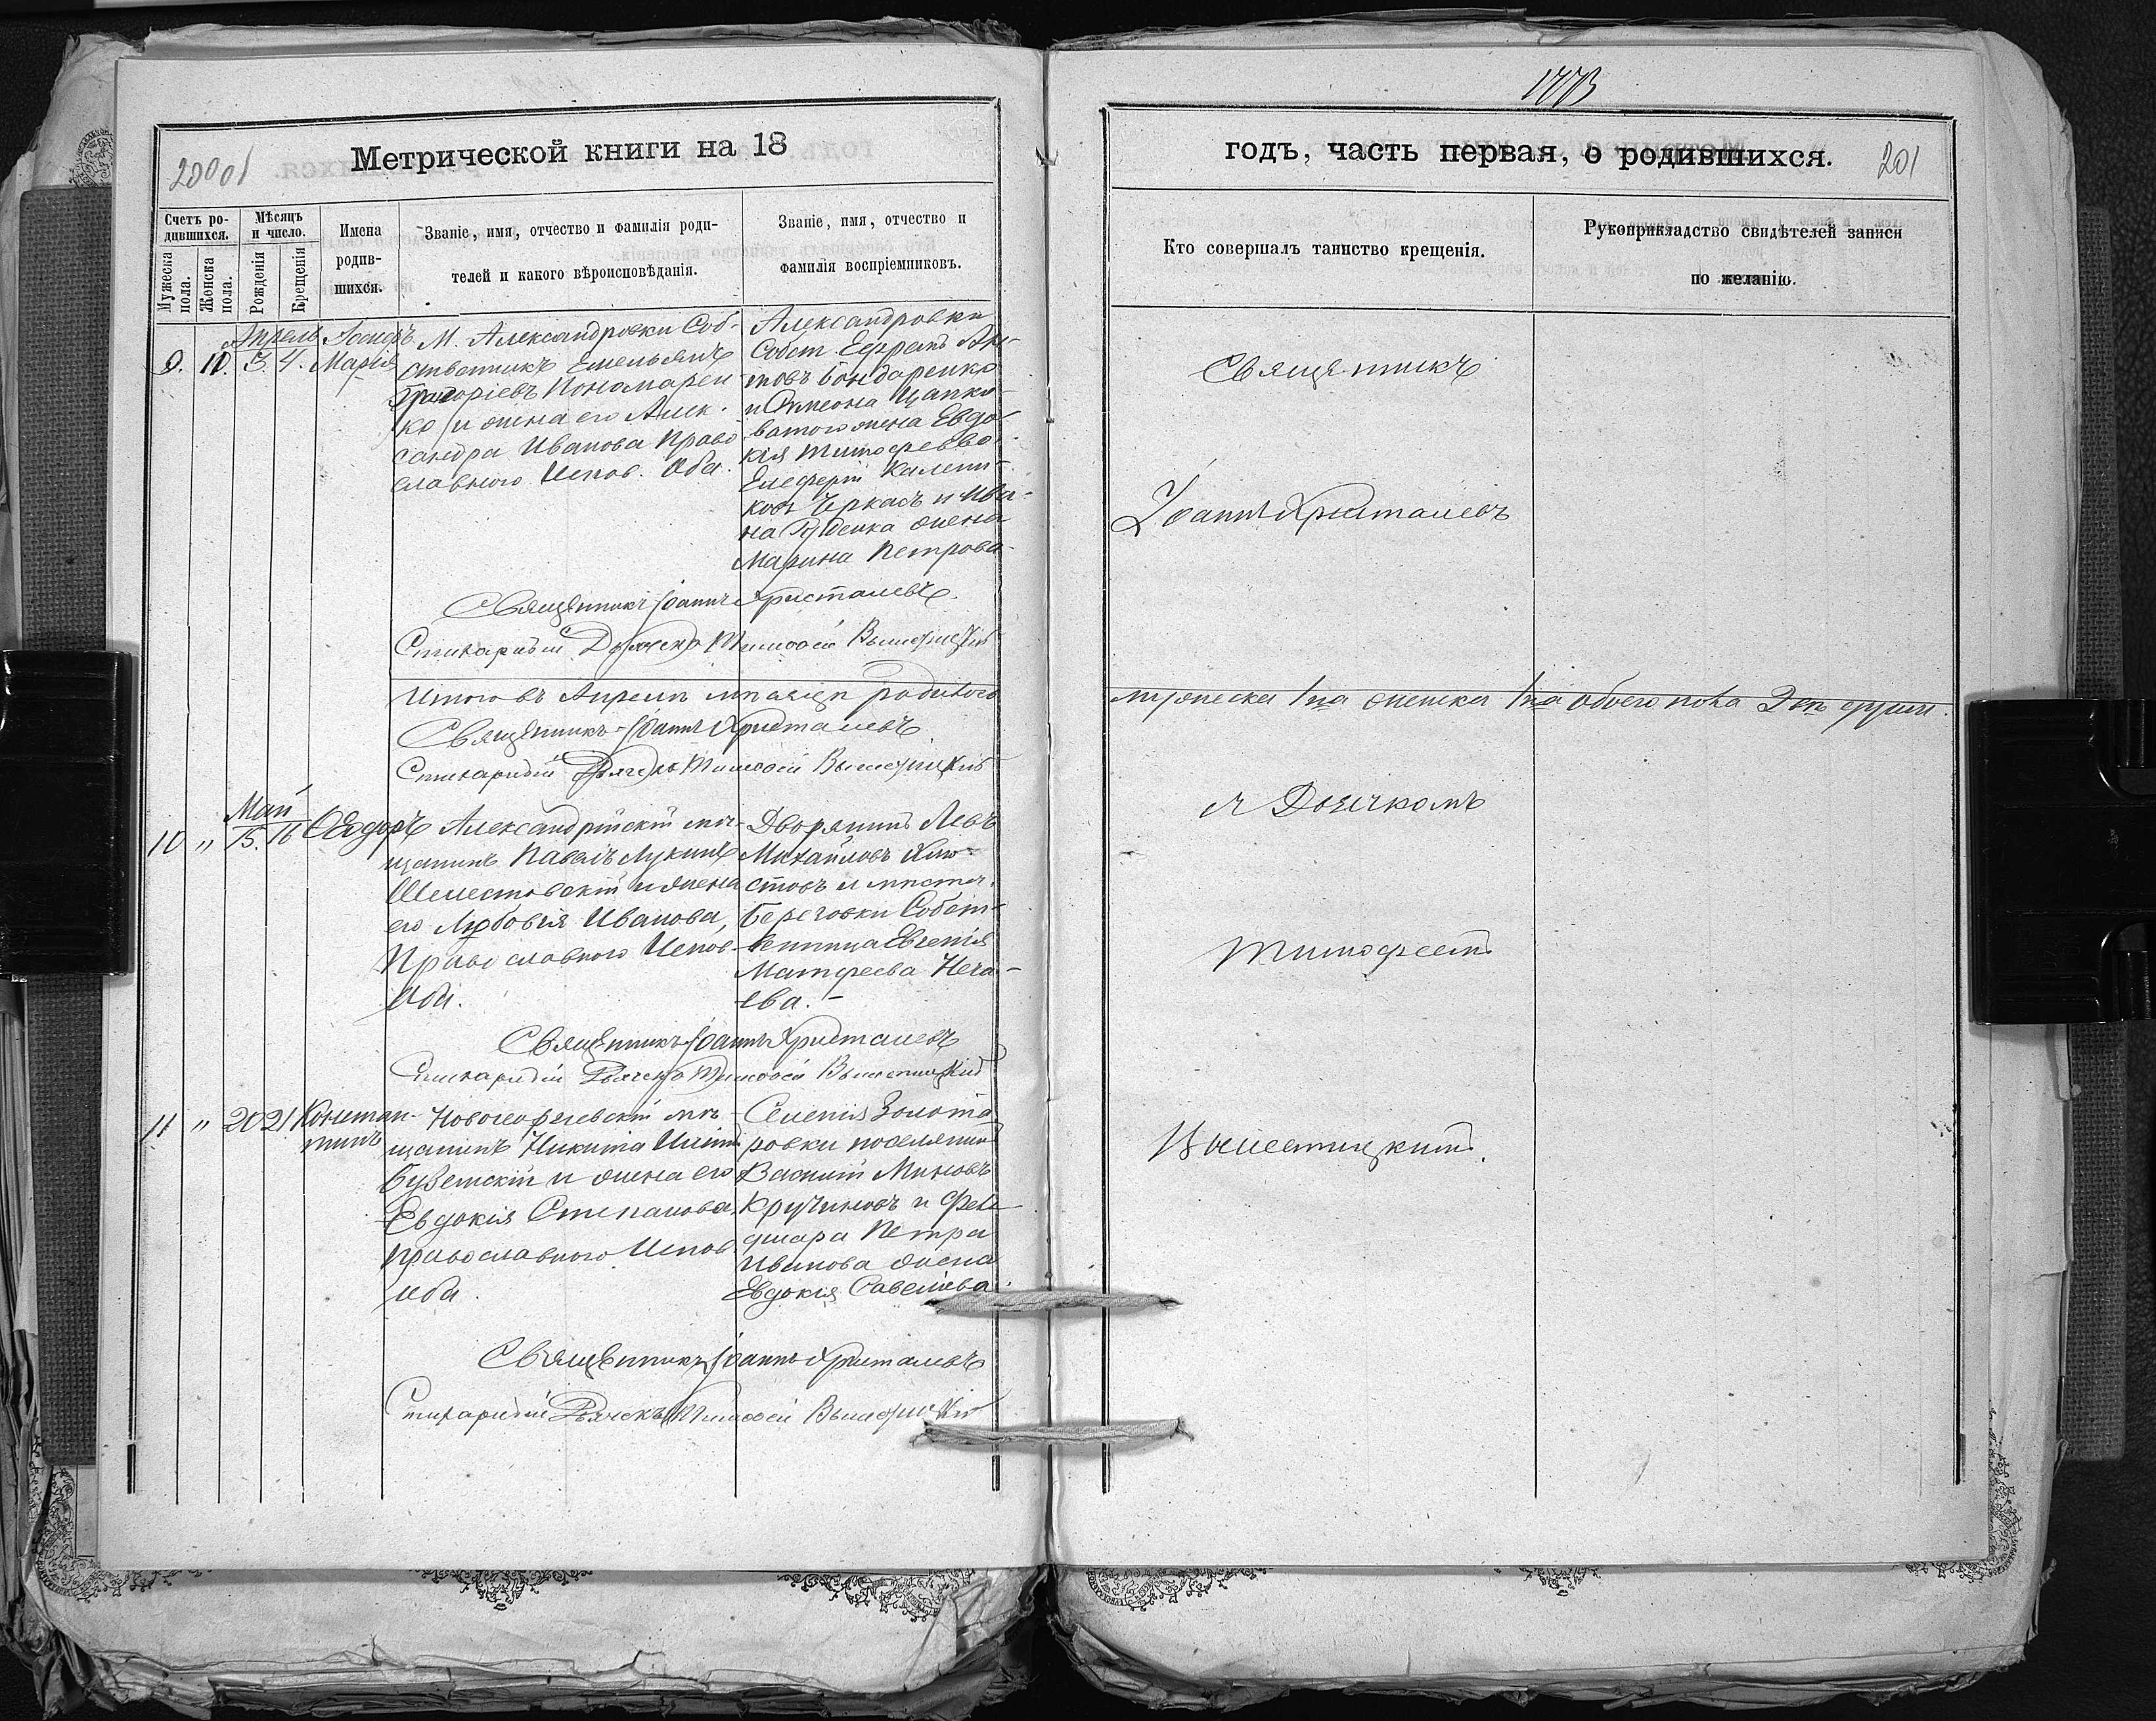 Метрической книги на 18
Счетъ ро-
дившихся.
Мужеска
пола.
Женска
пола.
Мѣсяцъ
и число.
Рожденія
Крещенія
Имена
родив-
шихся.
Званіе, имя, отчество и фамилія роди-
телей и какого вѣроисповѣданія.
Званіе, имя, отчество и
фамилія воспріемниковъ.
Апрель
9. 10. 3. 4.
Іосифъ
Марія
М. Александровки Соб-
ственникъ Емельянъ
Григоріевъ Пономарен-
ко и жена его Алек-
сандра Иванова Право
славного Испов. Оба.
Александровки
Собст. Ефремъ
Бондаренко
и Симеона Цапко-
ватого жена Евдо-
кія Тимофеева.
Елеферій
Черкасъ и Ива-
на Руденка жена
Марина Петрова
Священникъ Іоаннъ Христалевъ
Стихарный Дьячекъ Тимоѳей
Итого въ Апреле месяце родилось
Священникъ Іоаннъ Христалевъ
Стихарный Дьячекъ Тимоѳей
Май
10 " 15. 16
Ѳеодоръ
Александрійскій мѣ-
щанинъ Павелъ Лукинъ
Шелестовскій и жена
его Любовія Иванова,
Православного Испов-
Оба.
Дворянинъ Левъ
Михайловъ Хлю-
стовъ и местеч.
Береговки Собст-
венница Евгенія
Матфеева Неча-
ева. -
Священникъ Іоаннъ Христалевъ
Стихарный Дьячекъ Тимоѳей
11 " 20 21
Констан-
тинъ
Новогеоргіевскій мѣ-
щанинъ Никита
и жена его
Евдокія Степанова
Православного Испов
оба.
Селенія Золота
ревки поселянинъ
Василій Миновъ
Кручиновъ и Фельд
шера Петра
Иванова жена
Евдокія Савельева.
Священникъ Іоаннъ Христалевъ
Стихарный Дьячекъ Тимоѳей
годъ, часть первая, о родившихся.
201
Кто совершалъ таинство крещенія.
Рукоприкладство свидѣтелей записи
по желанію.
Священникъ
Іоаннъ Христалевъ
мужеска 1 на женска 1 на обоего пола 2
съ Дьячкомъ
Тимофеемъ